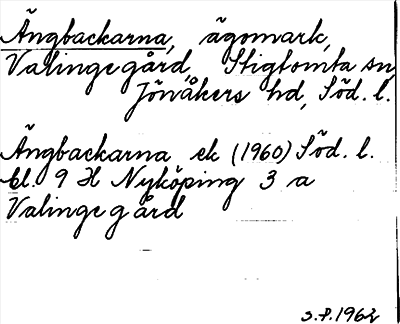 Ängbackarna, ägomark,
Valinge gård, Stigtomta sn,
Jönåkers hd, Söd. l.
Ängbackarna ek (1960) Söd. l.
bl. 9 H Nyköping 3 a
Valinge gård
S.P. 1962